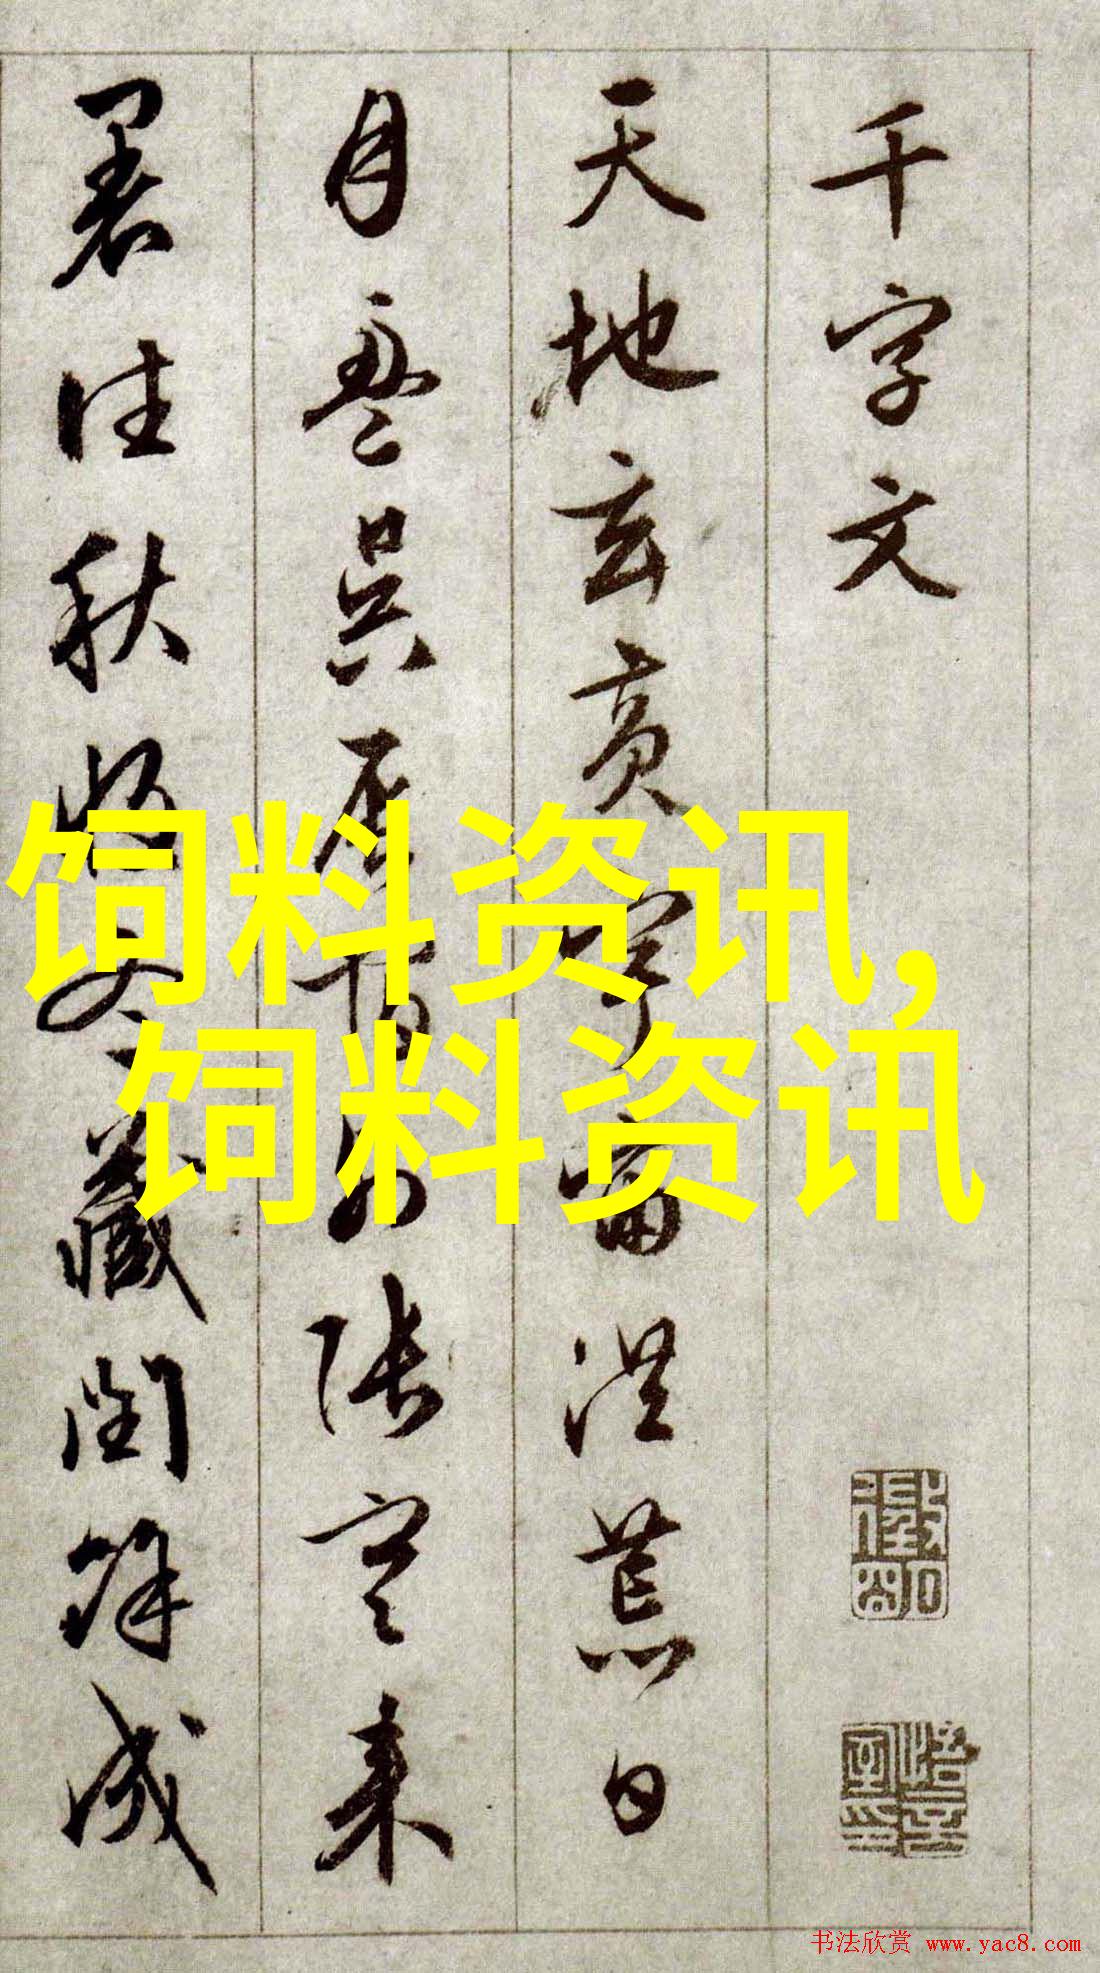 千字文
天地玄黄宇宙洪荒日
月盈昃辰宿列张寒来
暑往秋收冬藏闰馀成
饲料资讯,
饲料资讯
书法欣赏 www.yac8.com